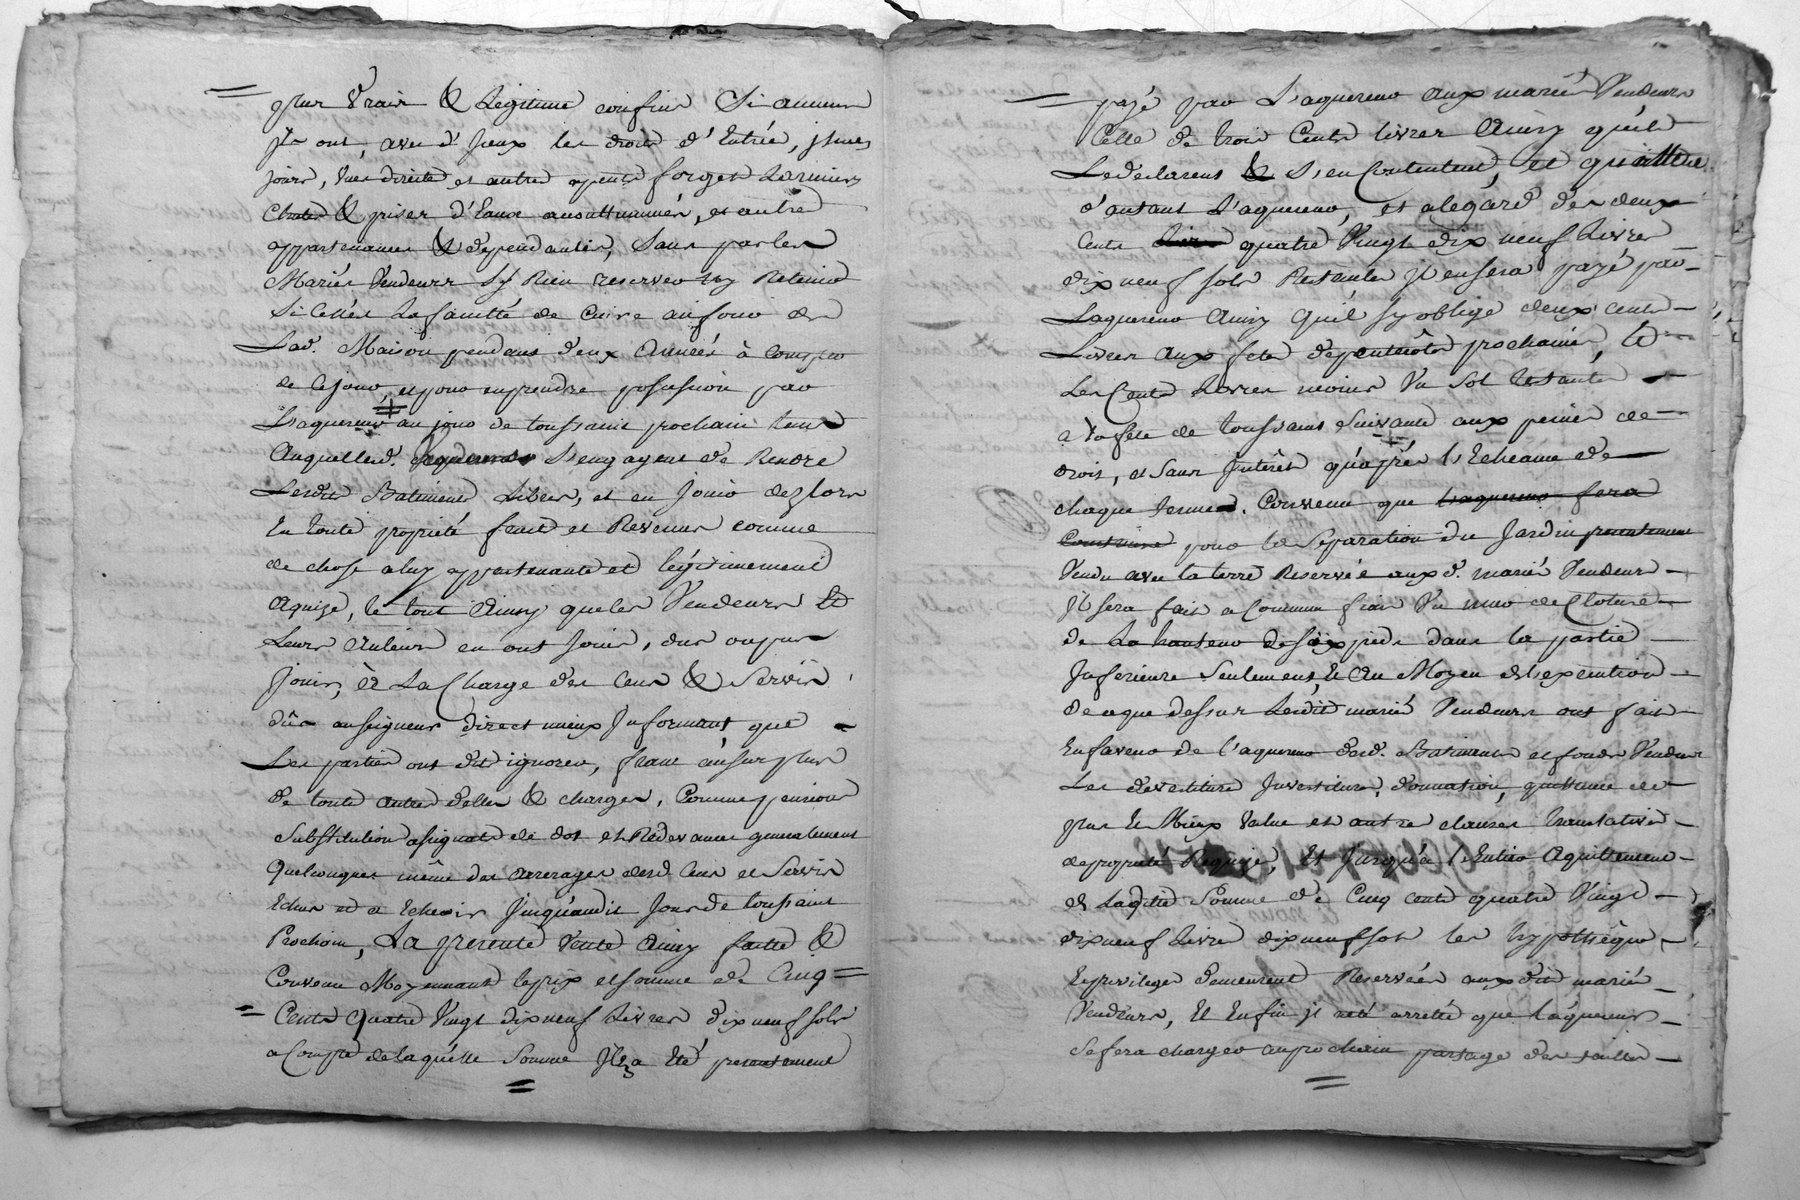 pour vrais & légitime confins Si aucuns
Ils ont, avec d'Iceux les droits d'Entrée, issues
jours, vues droits et autre forges
& prises d'Eaux accoutumées, et autre
appartenances & dépendantes, Sans par les
Mariés Vendeurs s'y Rien reserver ny Retenir
Si Cen'est La faculté de Cuire au four de
Lad. Maison pendant deux Années à Compter
de ce jour, et pour en prendre possession par
L'aquereur au jour de toussaint prochain tems
Auquel led. S'engagent de Rendre
Lesdits Batiments Libres, et en Jouir dezlors
En toute propriété fruits et Revenus comme
de chose a luy appartenante et légitimement
Aquise, le tout Ainsy que les Vendeurs Et
Leurs Auteurs en ont Joui, du ou pu
Jouir, à La Charge des Cens & Servis
dûs au seigneur direct mieux Informant que
Les parties ont dit ignorer, franc au surplus
de toute autre dettes & charges, Comme pension
Substitution assignat de dot et Redevances generalement
Quelconques même des arrerages desd Cens et Servis
Echus et a Echeoir Jusqu'audit Jour de toussaint
Prochain, La presente Vente Ainsy faitte &
Convenue Moyennant le prix et somme de Cinq =
= Cents Quatre Vingt dix neuf Livres dix neuf sols
a Compte de laquelle Somme Il a Eté presentement
=
= payé par L'aquereur aux mariés Vendeurs
Celle de trois Cents livres Ainsy quils
Le déclarent & S'en Contentent, et quittent
d'autant L'aquereur, et a légard des deux
Cents quatre Vingt dix neuf Livres
dix neuf sols Restants Il en sera payé par
Laquereur Ainsy Quil s'y oblige deux cents
Livres aux fete de pentecôte prochaine, Et
Les Cents Livres moins Un Sol Restants
a la fete de toussaint Suivante aux peines de
droit, et Sans Intérêt qu'après L'Echeance de
chaque terme. Convenu que laquereur fera
Construire pour la Separation du Jardin presentement
Vendu avec la terre Reservée aux d. mariés Vendeurs
Il sera fait a Commun frais Un mur de Cloture
de La hauteur de six pieds dans la partie
Inferieure Seulement, Et Au Moyen de L'execution
de ce que dessus Lesdits mariés Vendeurs ont fait
En faveur de l'aquereur desd. Batiments et fonds Vendus
Les devestiture Investiture, donnation, quittance de
plus Et Mieux Value et autre clauses translatives
de propriété Requise, Et Jusqu'à L'Entier Aquittement
de Ladite Somme de Cinq cents quatre Vingt
dix neuf Livre dix neuf sols les hypothèque
Et privilege demeurent Reservées aux dits mariés
Vendeurs, Et Enfin il a eté arrêté que l'aquereur
Se fera charger au prochain partage des tailles
=